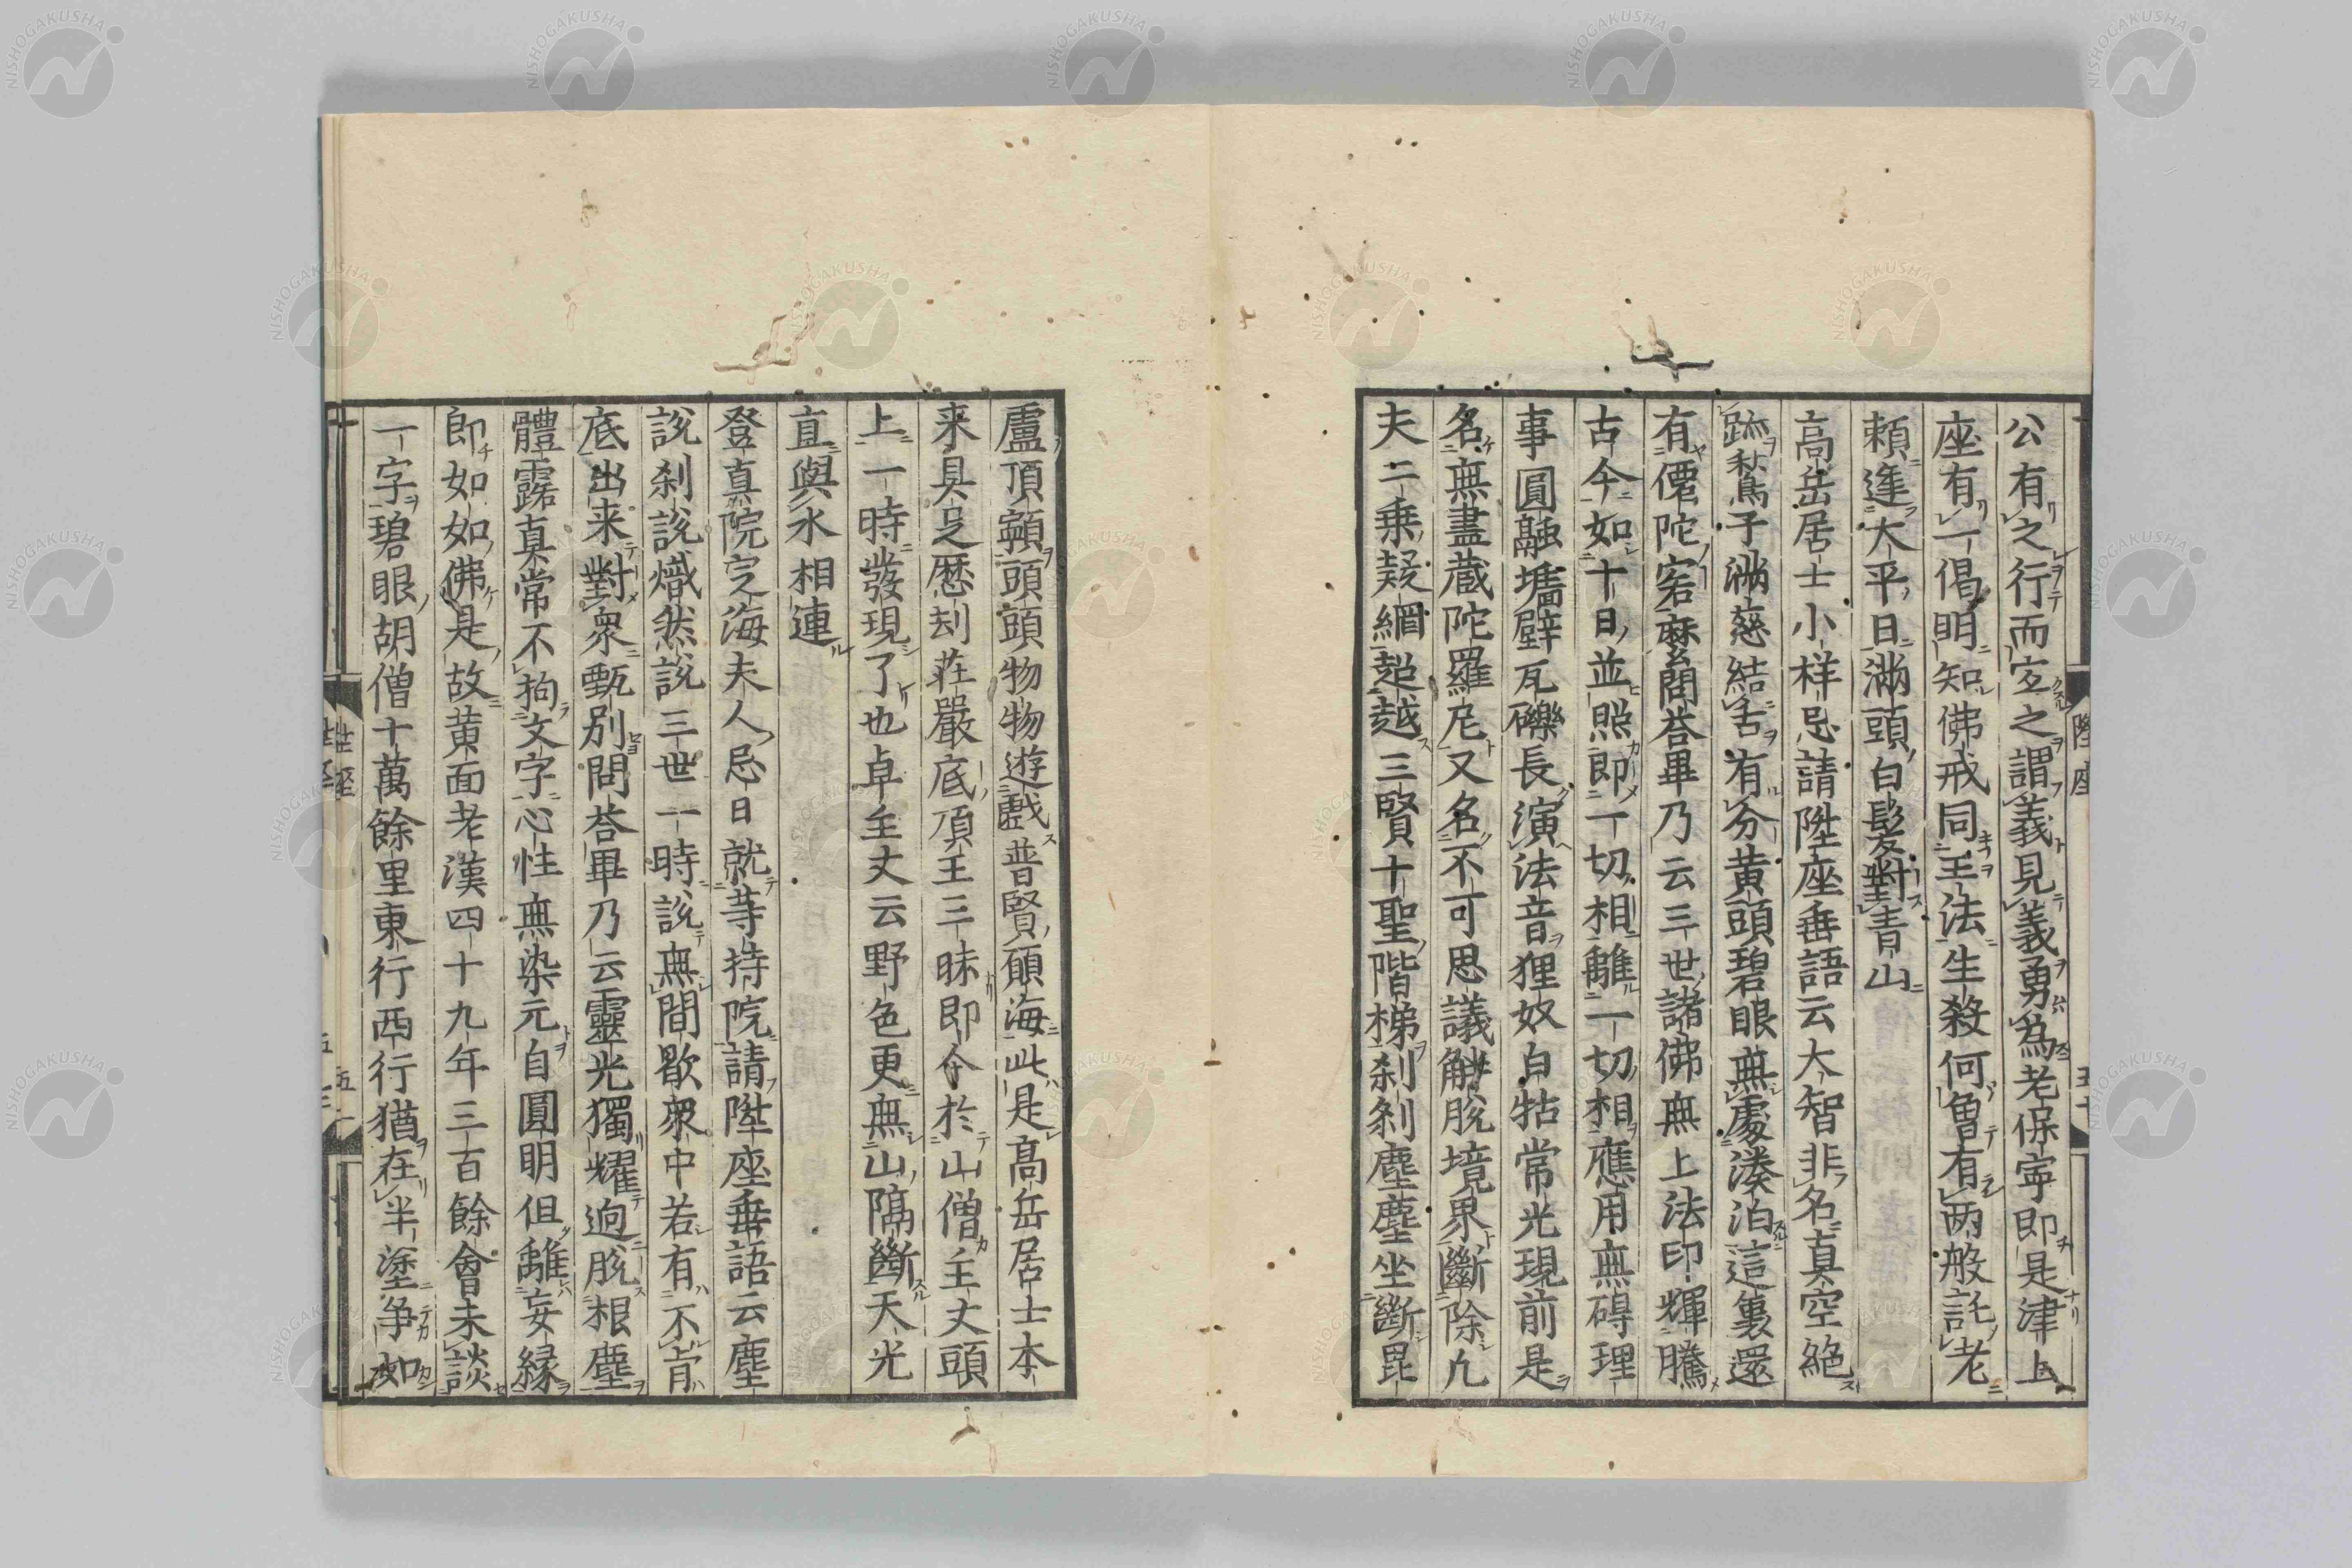 公有之行而宜之謂義見義勇為老保寧即是津上
座有一偈明知佛戒同王法生殺何曾有両般託老
頼逢大平日滿頭白髮對青山
高岳居士小祥忌請陞座垂語云大智非名真空絶
跡鶖子滿慈結舌有分黄頭碧眼無處湊泊這裏還
有僊陀客麽問荅畢乃云三世諸佛無上法印輝騰
古今如十日並照即一切相離一切相應用無碍理
事圓融墻壁瓦礫長演法音狸奴白牯常光現前是
名無盡蔵陀羅尼又名不可思議觧脱境界斷除凢
夫二乗疑網超越三賢十聖階梯刹刹塵塵坐斷毘
盧頂𩕳頭頭物物遊戯普賢願海此是高岳居士本
来具足歴刧荘嚴底頂王三昧即今於山僧主丈頭
上一時發現了也卓主丈云野色更無山隔斷天光
直與水相連
登真院定海夫人忌日就等持院請陞座垂語云塵
説刹説熾然説三世一時説無間歇衆中若有不肯
底出来對衆甄別問荅畢乃云靈光獨耀逈脱根塵
體露真常不拘文字心性無染元自圓明但離妄縁
即如如佛是故黄面老漢四十九年三百餘會未談
一字碧眼胡僧十萬餘里東行西行猶在半塗争如
陞座
五十
陞座
五十一